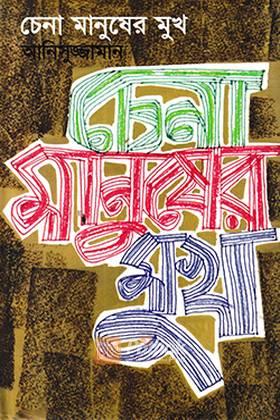 চেনা মানুষের মুখ
আনিসুজ্জামান
চেনা
মানুষের
মুখ